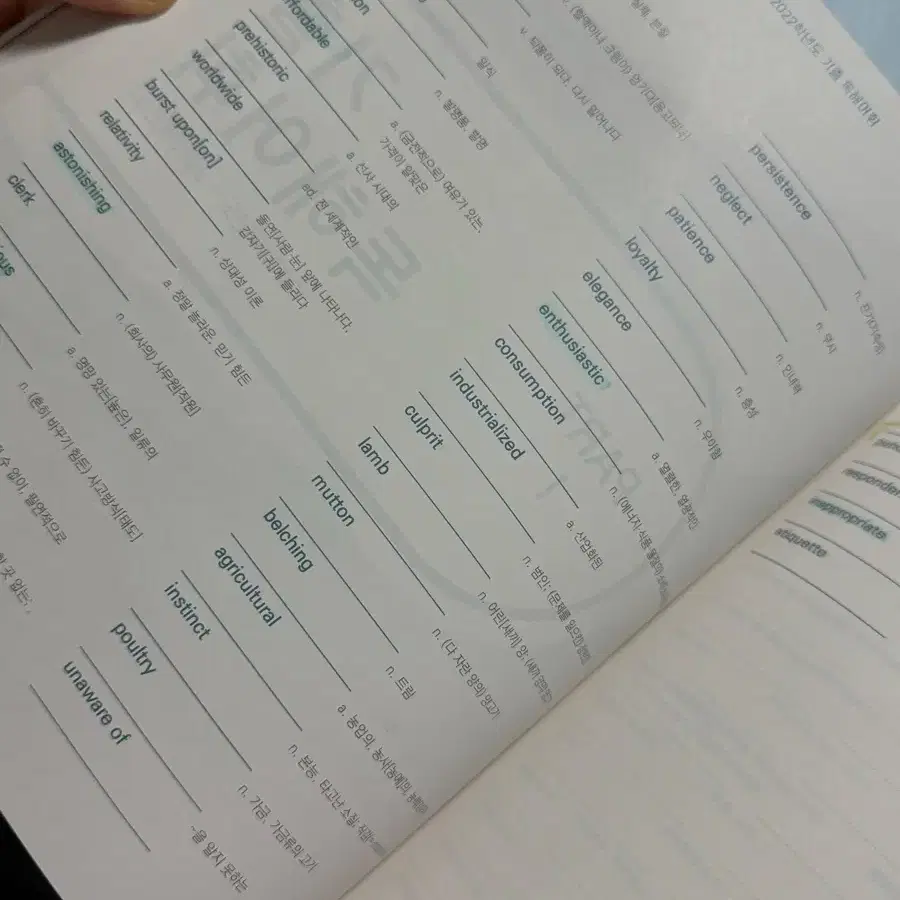 2022학년도 기출 독해어휘
v. 되풀이 되다, 다시 일어나다
일식
n. 발명품, 발명
a. (금전적으로) 여유가 있는,
가격이 알맞은
prehistoric a. 선사 시대의
worldwide ad. 전 세계적인
burst upon[on] 돌연[사람 눈] 앞에 나타나다,
갑자기[귀]에 들리다
relativity n. 상대성 이론
astonishing a. 정말 놀라운, 믿기 힘든
clerk n. (회사의) 사무원[직원]
a. 명망 있는[높은], 일류의
n. (흔히 바꾸기 힘든) 사고방식[태도]
수 없이, 필연적으로
persistence n.
neglect n. 무시
patience n. 인내력
loyalty n. 충성
elegance n. 우아함
enthusiastic a. 열렬한, 열광적인
consumption n. (에너지·식품·
industrialized a. 산업화된
culprit n. 범인; (문제를 일으킨)
lamb n. 어린[새끼] 양;
mutton n. (다 자란 양의) 양고기
belching n. 트림
agricultural a. 농업의, 농사[농예]의
instinct n. 본능, 타고난 소질,
poultry n. 가금, 가금류의 고기
unaware of ~을 알지 못하는
etiquette